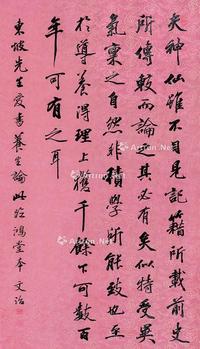 夫神仙雖不目見記籍所載前史
所傳較而論之其必有矣似特受異
氣稟之自然非積學所能致也至
於導養得理上獲千餘下可數百
年可有之耳
東坡先生爱書養生論此臨鴻堂本 文治